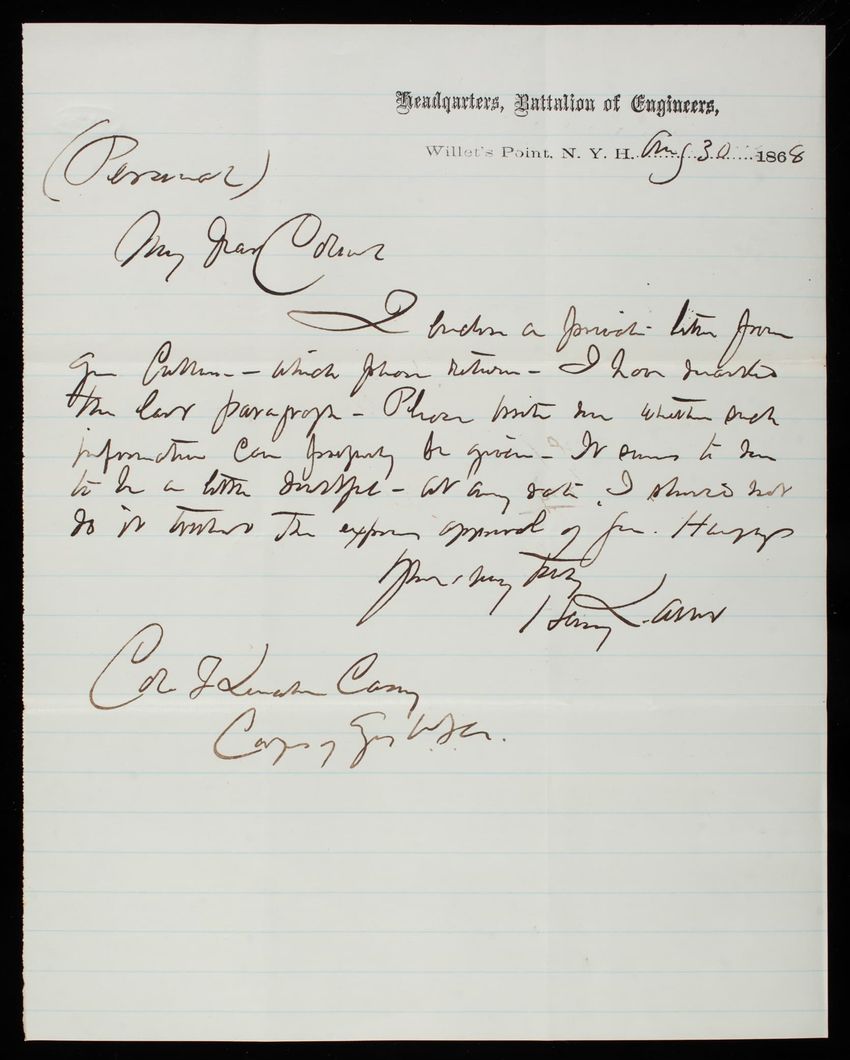 Headqarters, Battalion of Engineers,
Willet's Point, N. Y. H. Aug 30 1868
(Personal)
My Dear Colonel
I enclose a private letter from
Gen Cullum - which please return - I have marked
the last paragraph - Please write me whether such
information can properly be given - It seems to me
to be a little doubtful - at any rate, I should not
do it without the express approval of Gen. Humphreys
Yours very truly
Henry L. Abbot
Col T Lincoln Casey
Corps of Engrs USA.